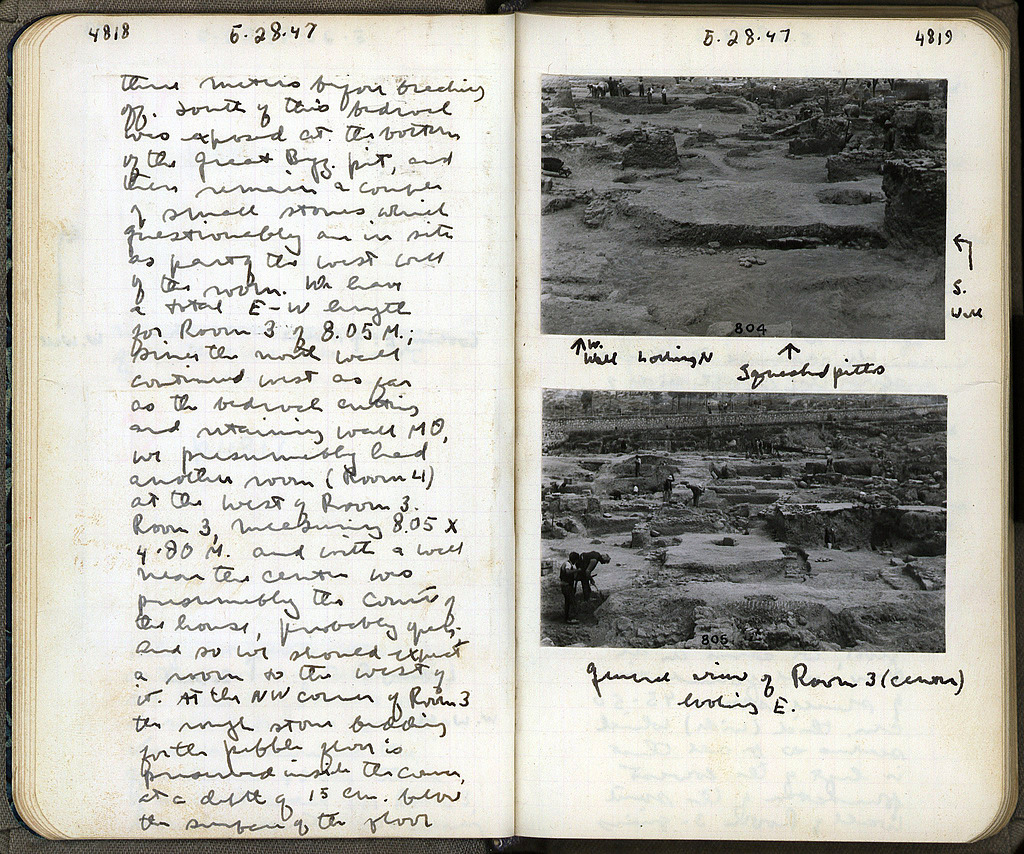 4818
5.28.47
three meters before breaking
off. South of this bedrock
was exposed at the bottom
of the great Byz. pit, and
there remain a couple
of small stones which
questionably are in situ
as part of the west wall
of the room. We have
a total E-W length
for Room 3 of 8.05 M.;
since the north wall
continued west as far
as the bedrock cutting
and retaining wall MO,
we presumably had
another room (Room 4)
at the west of Room 3.
Room 3, measuring 8.05 x
4.80 M. and with a well
near the center was
presumably the court of
the house, probably
and so we should expect
a room to the west of
it. At the NW corner of Room 3
the rough stone bedding
for the pebble floor is
preserved inside the corner,
at a depth of 15 cm. below
the surface of the floor
5.28.47
4819
804
S.
Wall
W.
Wall Looking N
Squashed pithos
805
General view of Room 3 (center)
looking E.